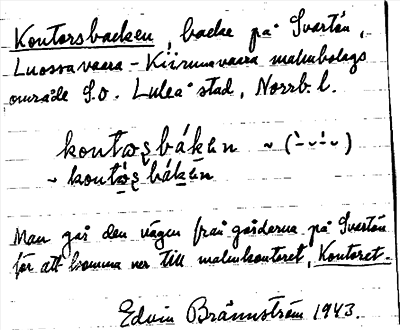 Kontorsbacken, backe på Svartön,
Luossavaara-Kiirunavaara malmbolags
område S.O. Luleå stad, Norrb. l.
kontωȿbákɛn ~ (`-ᴗ-́-ᴗ)
~ kontω̣ȿbákɛn
Man går den vägen från gårdarna på Svartön
för att komma ner till malmkontoret, Kontoret.
Edvin Brännström 1943.